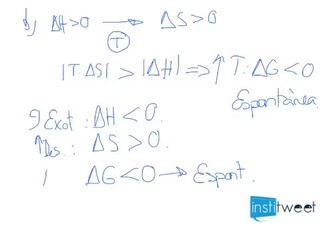 b) ΔH>0 ⟶ ΔS>0
(T)
|T·ΔS| > |ΔH| ⇒ ↑T: ΔG<0
Espontánea
Exot: ΔH<0.
↑Des: ΔS>0.
ΔG<0 → Espont.
institweet